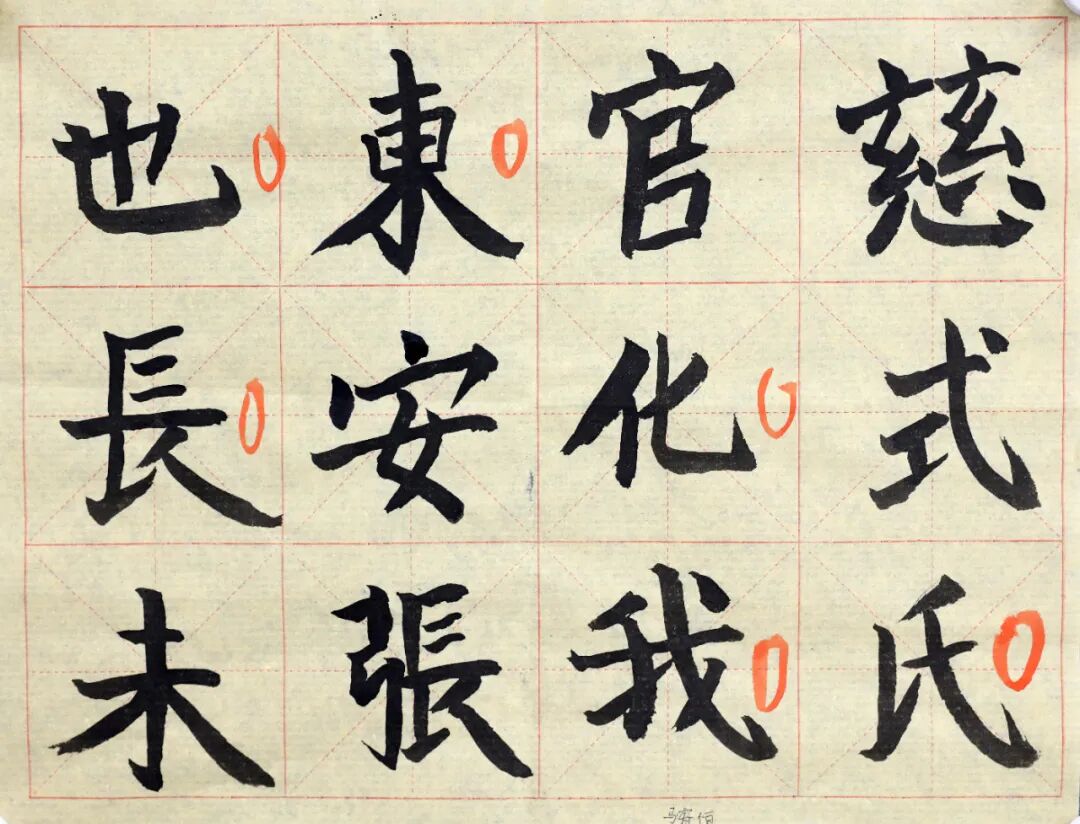 慈式氏
官化我
東安張
也長未